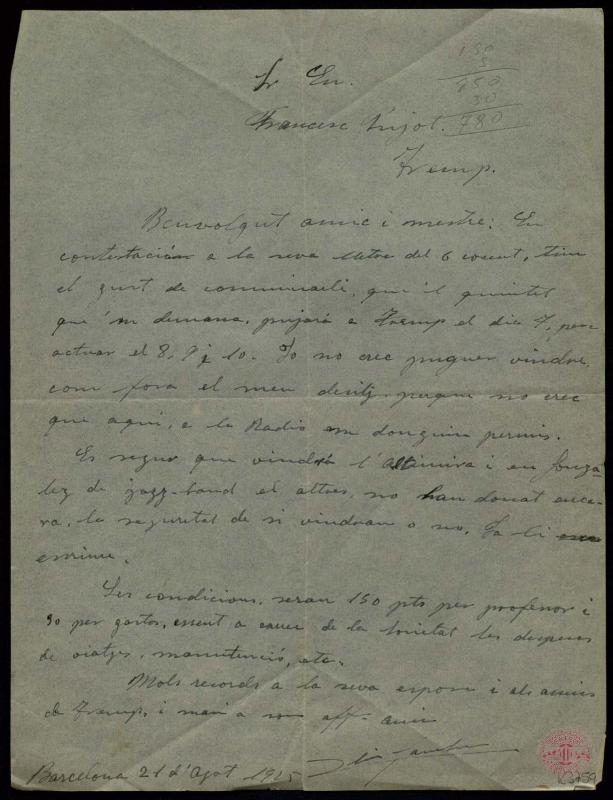 Sr En.
150
5
750
30
780
Francesc Pujol.
Tremp.
Benvolgut amic i mestre: En
contestación a la seva lletra del 6 corrent, tinc
el gust de comunicarli, que'l quintet
que'm demana, pujará a Tremp el dia 7, per
actuar el 8, 9 i 10. Jo no crec puguer vindre,
com fora el meu desitj, perque no crec
que aqui, a la Radio em donguin permis.
Es segur que vindrá l'Altimira i en Gonzá-
lez de jazz-band el altres, no han donat enca-
ra, la seguretat de si vindran o no. Ja li
escriure.
Les condicions, seran 150 pts per profesor i
30 per gastos, essent a carrec de la Societat les despeses
de viatges, manutenció, etc.
Mols recorts a la seva esposa i als amics
de Tremp, i mani a son aff. amic
Barcelona 21 d'Agot 1925